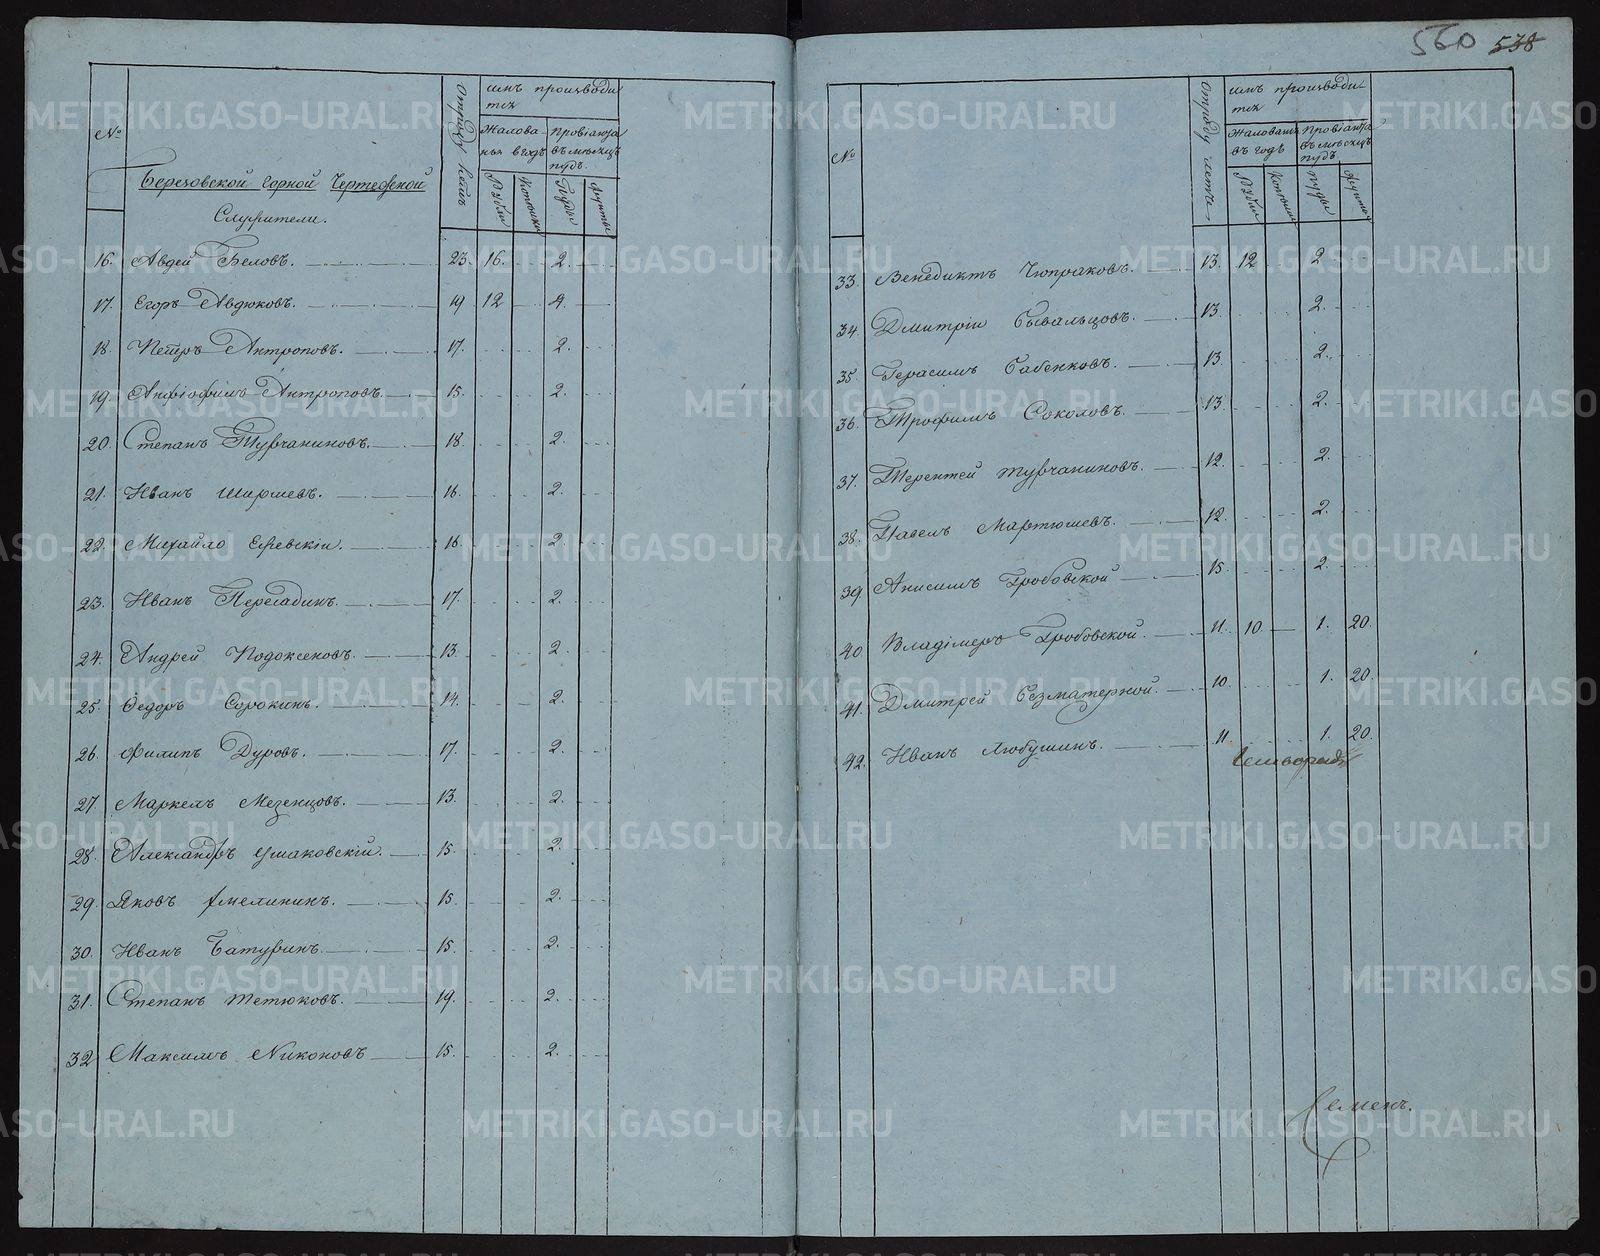 560 538
№
Отъ роду летъ
имъ производи
тся
Жалова
нья в годъ
Провіанта
въ месяцъ
пудъ.
Рубли
Копейки
Пуды
Фунты
Березовской горной Чертежной
Служители.
16. Авдей Беловъ. 23. 16. 2.
17. Егоръ Авдюковъ. 19 12 2.
18. Петръ Антроповъ. 17. 2.
19. Анфіофимъ Антроповъ. 15. 2.
20. Степанъ Турчаниновъ. 18. 2.
21. Иванъ Ширшевъ. 16. 2.
22. Михайло Ержевскіи. 16. 2.
23. Иванъ Пересадинъ. 17. 2.
24. Андрей Подоксеновъ. 13. 2.
25. Ѳедоръ Сорокинъ. 14. 2.
26. Филипъ Дуровъ. 17. 2.
27. Маркелъ Мезенцовъ. 13. 2.
28. Александръ Ушаковскій. 15. 2.
29. Яковъ Амелининъ. 15. 2.
30. Иванъ Батуринъ. 15. 2.
31. Степанъ Тетюковъ. 19. 2.
32 Максимъ Никоновъ 15. 2.
№
Отъ роду летъ
имъ производи
тся
Жалованья
въ годъ
Провіанта
въ месяцъ
пудъ
Рубли
Копейки
пуды
фунты
33. Венедиктъ Чюпраковъ. 13. 12. 2
34. Дмитріи Бывальцовъ. 13. 2.
35. Герасимъ Бабенковъ. 13. 2.
36. Трофимъ Соколовъ. 13. 2.
37. Терентей Турчаниновъ. 12. 2.
38. Павелъ Мартюшевъ. 12. 2.
39. Анисимъ Гробовской 15. 2.
40 Владімеръ Гробовской. 11. 10. 1. 20.
41. Дмитрей Безматерной. 10. 1. 20.
42. Иванъ Любушинъ. 11. 1. 20.
Семенъ.
METRIKI.GASO-URAL.RU